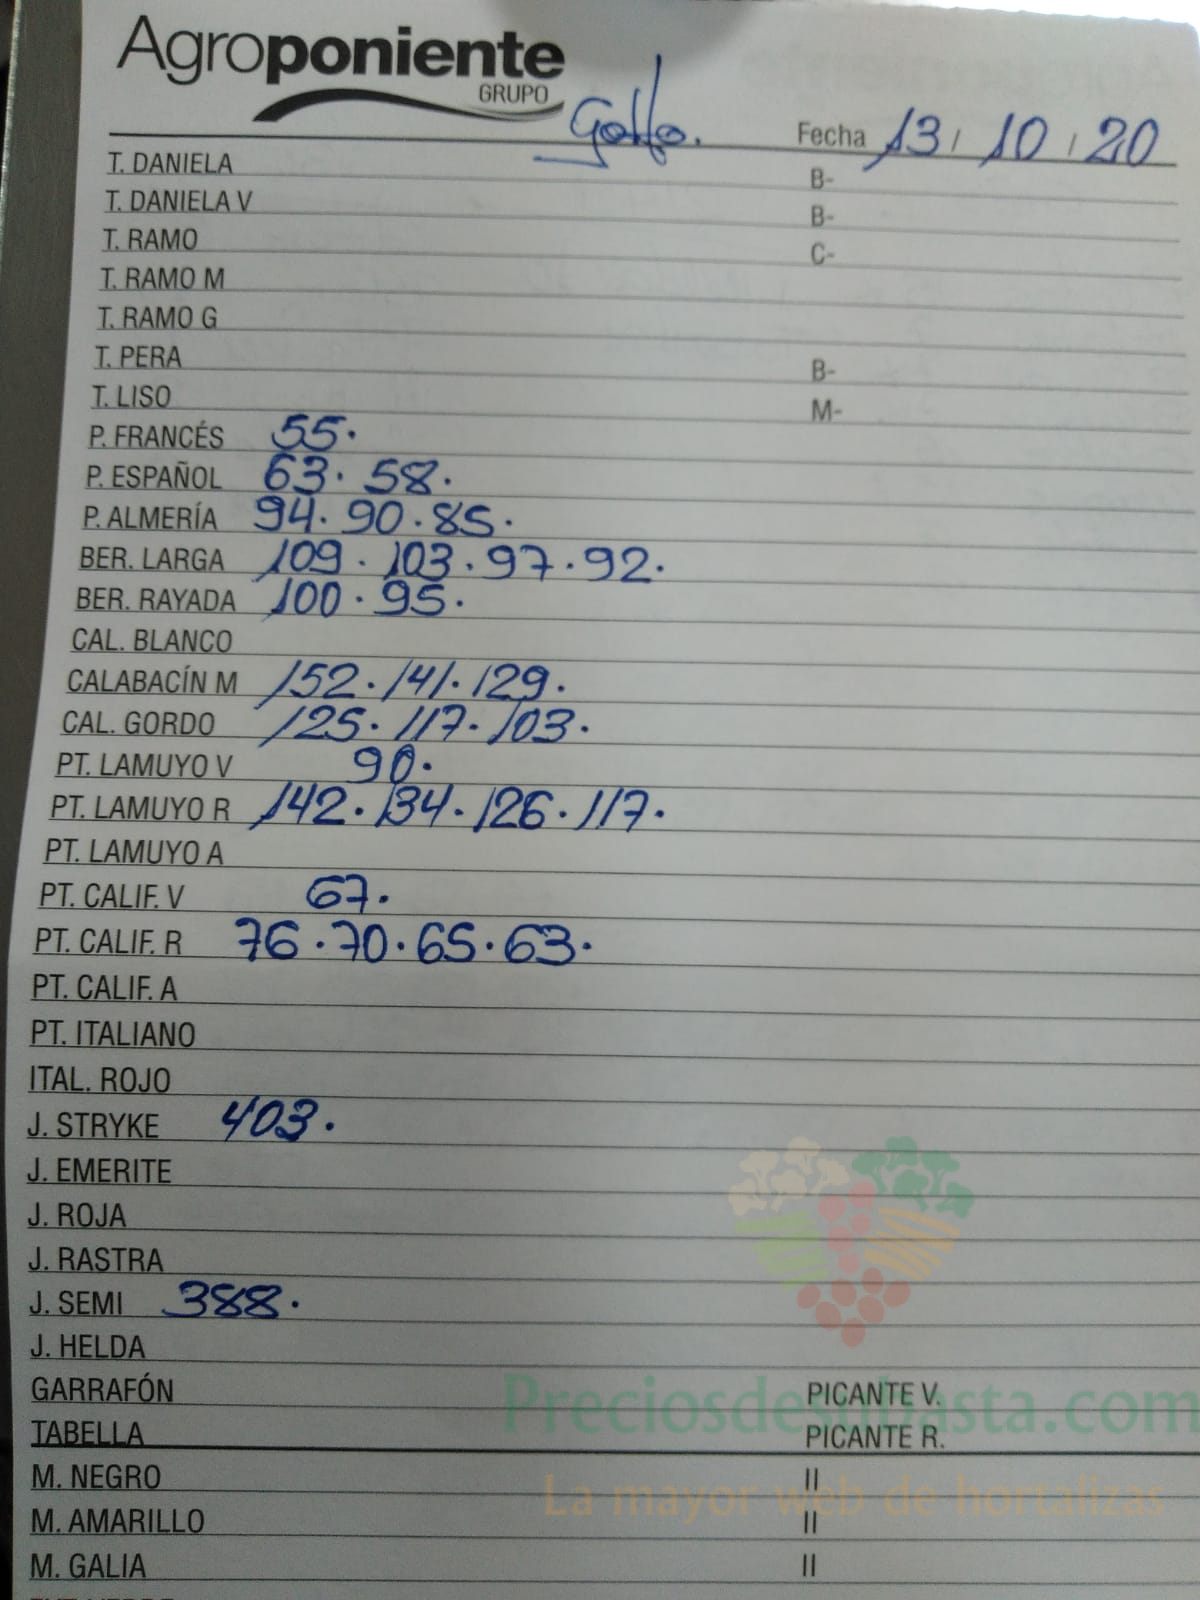 Agroponiente
GRUPO
Golfo. Fecha 13 / 10 / 20
T. DANIELA B-
T. DANIELA V B-
T. RAMO C-
T. RAMO M
T. RAMO G
T. PERA B-
T. LISO M-
P. FRANCÉS 55.
P. ESPAÑOL 63. 58.
P. ALMERÍA 94. 90. 85.
BER. LARGA 109. 103. 97. 92.
BER. RAYADA 100. 95.
CAL. BLANCO
CALABACÍN M 152. 141. 129.
CAL. GORDO 125. 117. 103.
PT. LAMUYO V 90.
PT. LAMUYO R 142. 134. 126. 117.
PT. LAMUYO A
PT. CALIF. V 67.
PT. CALIF. R 76. 70. 65. 63.
PT. CALIF. A
PT. ITALIANO
ITAL. ROJO
J. STRYKE 403.
J. EMERITE
J. ROJA
J. RASTRA
J. SEMI 388.
J. HELDA
GARRAFÓN PICANTE V.
Preciosdesubasta.com
TABELLA PICANTE R.
M. NEGRO II
La mayor web de hortalizas
M. AMARILLO II
M. GALIA II